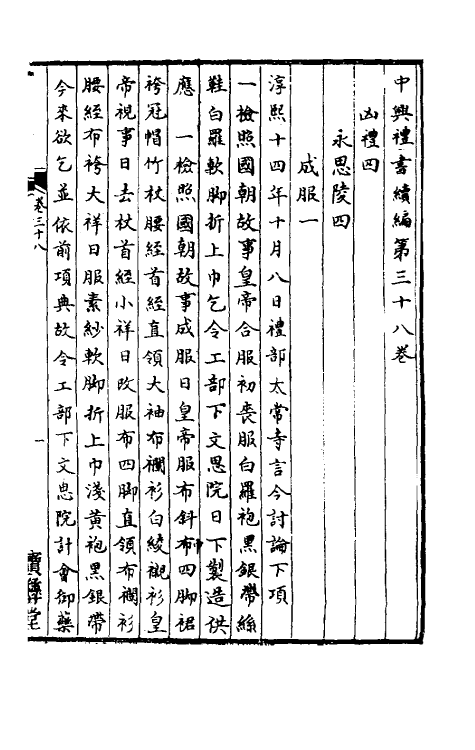 中興禮書續編第三十八卷
凶禮四
永思陵四
成服一
淳熙十四年十月八日禮部太常寺言今討論下項
一檢照國朝故事皇帝合服初喪服白羅袍黑銀帶絲
鞋白羅軟脚折上巾乞令工部下文思院日下製造供
應　一檢照國朝故事成服日皇帝服布斜巾四脚裙
袴冠帽竹杖腰絰首絰直領大袖布襴衫白綾襯衫皇
帝視事日去杖首絰小祥日改服布四脚直領布襴衫
腰絰布袴大祥日服素紗軟脚折上巾淺黄袍黑銀帶
今來欲乞並依前項典故令工部下文思院計會御藥
卷三十八
一